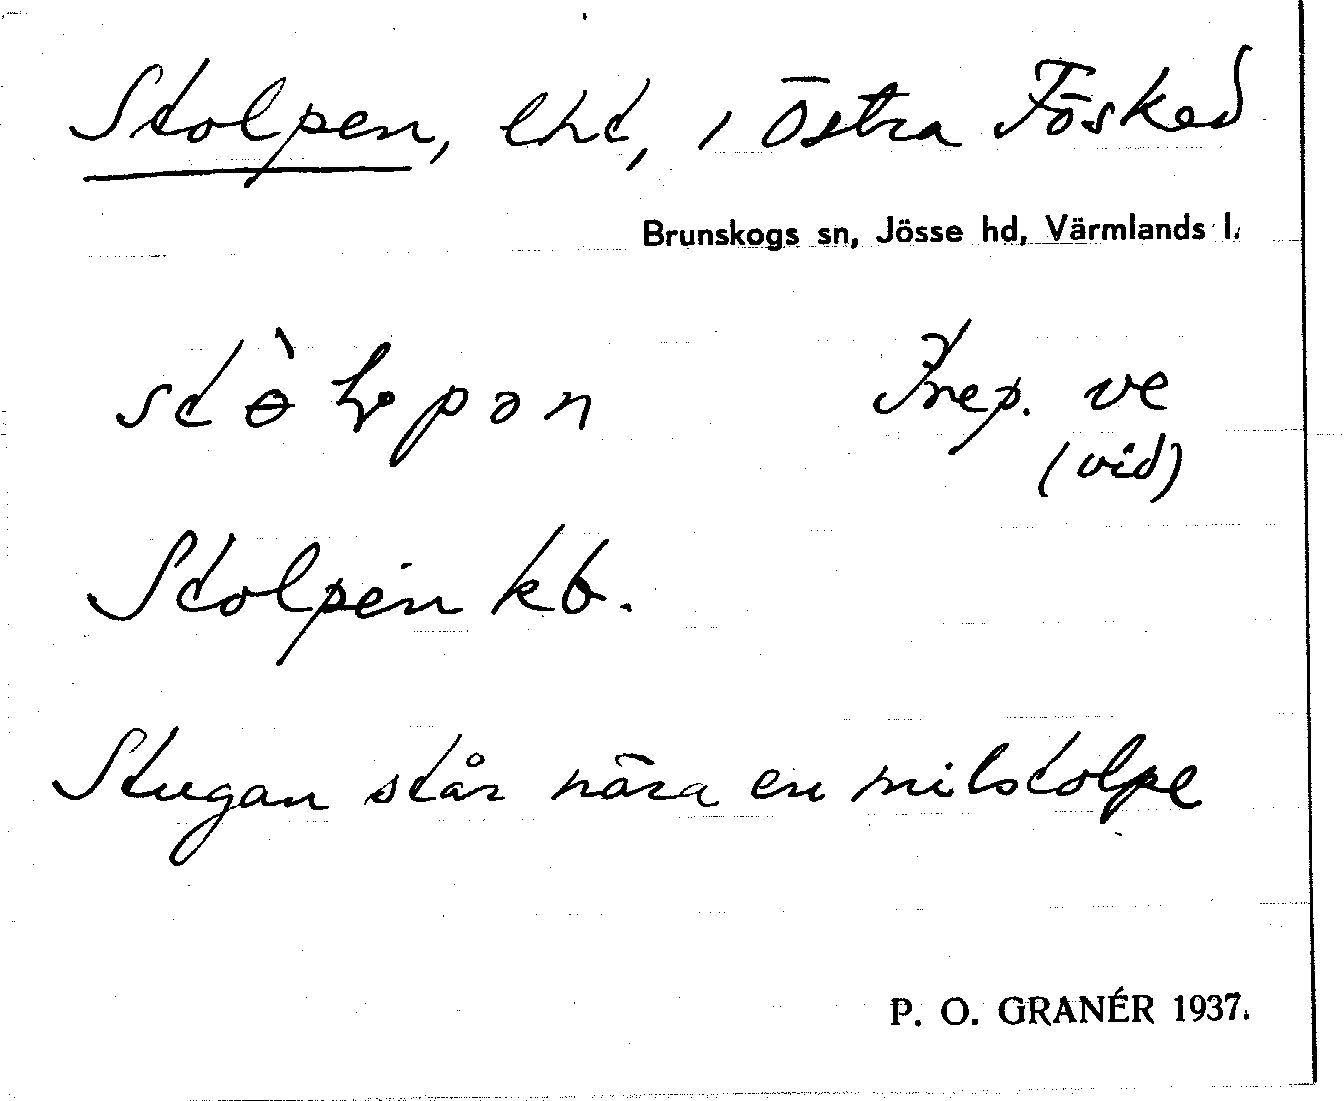 Stolpen, lht, i Östra Fösked
Brunskogs sn, Jösse hd, Värmlands l.
stɵ̀ɽpən Prep. ve
(vid)
Stolpen kb.
Stugan står nära en milstolpe
P. O. GRANÉR 1937.